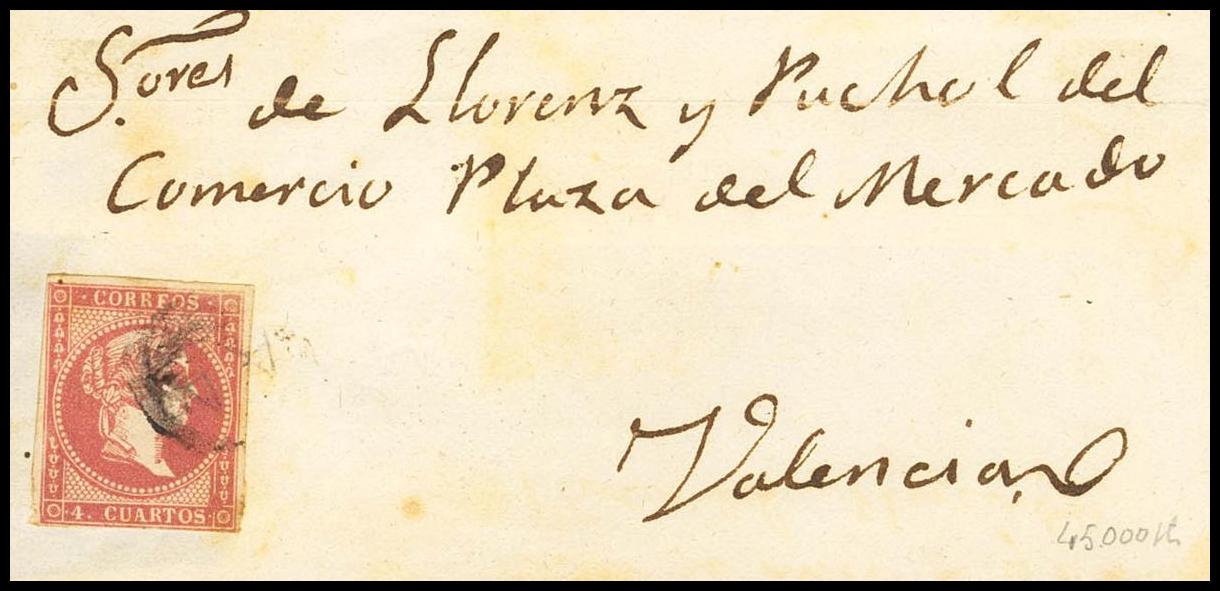 S.ores de Llorenz y Puchol del
Comercio Plaza del Mercado
CORREOS
4. CUARTOS.
Valencia
45.000